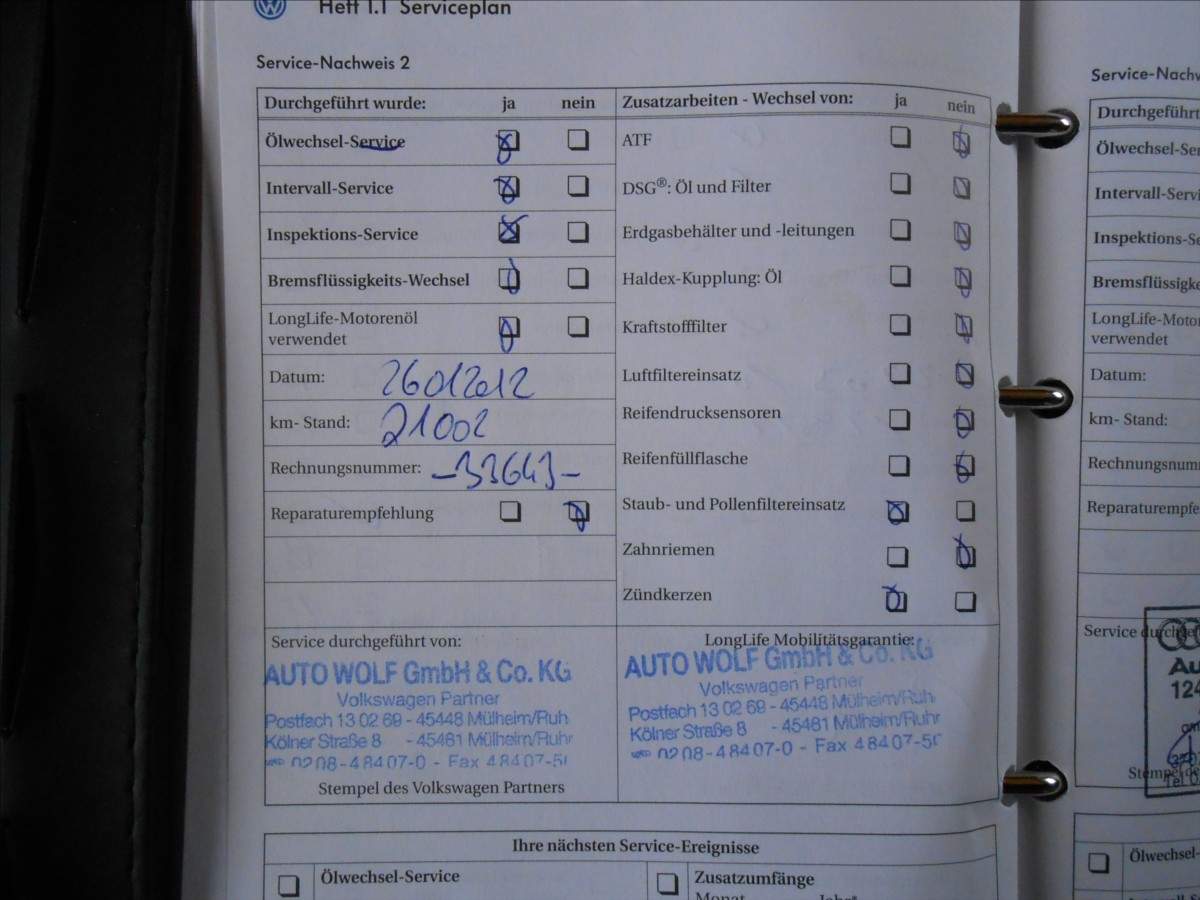 Heft 1.1 Serviceplan
Service-Nachweis 2
Durchgeführt wurde: ja nein
Ölwechsel-Service
Intervall-Service
Inspektions-Service
Bremsflüssigkeits-Wechsel
LongLife-Motorenöl
verwendet
Datum: 26012012
km- Stand: 21002
Rechnungsnummer: -33643-
Reparaturempfehlung
Zusatzarbeiten - Wechsel von: ja nein
ATF
DSG®: Öl und Filter
Erdgasbehälter und -leitungen
Haldex-Kupplung: Öl
Kraftstofffilter
Luftfiltereinsatz
Reifendrucksensoren
Reifenfüllflasche
Staub- und Pollenfiltereinsatz
Zahnriemen
Zündkerzen
Service durchgeführt von:
AUTO WOLF GmbH & Co. KG
Volkswagen Partner
Postfach 13 02 69 - 45448 Mülheim/Ruh
Kölner Straße 8 - 45481 Mülheim/Ruhr
0208-48407-0 - Fax 48407-50
Stempel des Volkswagen Partners
LongLife Mobilitätsgarantie:
AUTO WOLF GmbH & Co. KG
Volkswagen Partner
Postfach 13 02 69 - 45448 Mülheim/Ruh
Kölner Straße 8 - 45481 Mülheim/Ruhr
0208-48407-0 - Fax 48407-50
Ihre nächsten Service-Ereignisse
Ölwechsel-Service
Zusatzumfänge
Monat Jahr*
Service-Nachw
Durchgeführt
Ölwechsel-Ser
Intervall-Servi
Inspektions-Se
Bremsflüssigke
LongLife-Motor
verwendet
Datum:
km- Stand:
Rechnungsnum
Reparaturempfe
Service durchge
Au
124
Stempel de
Tel 0
Ölwechsel-